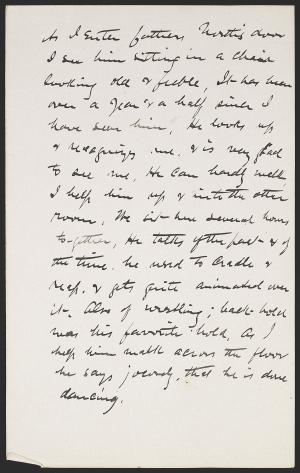 As I enter fathers North door
I see him sitting in a chair
looking old & feeble, It has been
over a year & a half since I
have seen him, He looks up
& recognizes me, & is very glad
to see me, He can hardly walk,
I help him up & into the other
room, We sit here several hours
to-gether, He talks of the past & of
the time he used to cradle &
reap, & gets quite animated over
it. Also of wrestling; back-hold
was his favorite hold. As I
help him walk across the floor
he says jocosely, that he is done
dancing.